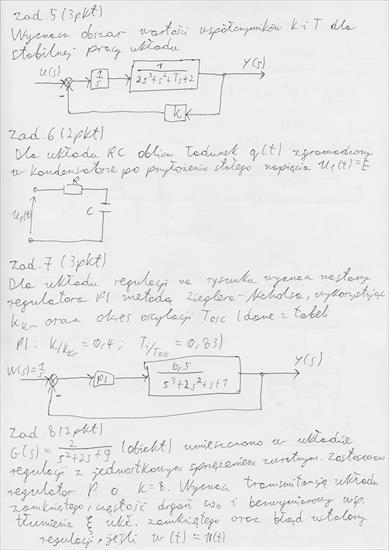 Zad.5 (3pkt)
Wyznacz obszar wartości współczynników k i T dla
stabilnej pracy układu
U(s) 1/s 1/(2s³+s²+Ts+2) Y(s)
-
k
Zad.6 (2pkt)
Dla układu RC oblicz ładunek q(t) zgromadzony
w kondensatorze po przyłożeniu stałego napięcia U₁(t)=E
R
U₁(t) C
Zad.7 (3pkt)
Dla układu regulacji na rysunku wyznacz nastawy
regulatora PI metodą Zieglera-Nicholsa, wykorzystując
kKr oraz okres oscylacji Tosc (dane z tabeli
PI: K/KKr = 0,4; Ti/Tosc = 0,83)
W(s)=1/s PI 0,5/(s³+2s²+s+1) Y(s)
-
Zad.8 (2pkt)
G(s) = 2/(s²+2s+9) (obiekt) umieszczono w układzie
regulacji z jednostkowym sprzężeniem zwrotnym. Zastosowano
regulator P o k=8. Wyznacz transmitancję układu
zamkniętego, częstość drgań ω₀ i bezwymiarowy wsp.
tłumienia ξ ukł. zamkniętego oraz błąd ustalony
regulacji, jeśli w(t) = 1(t)